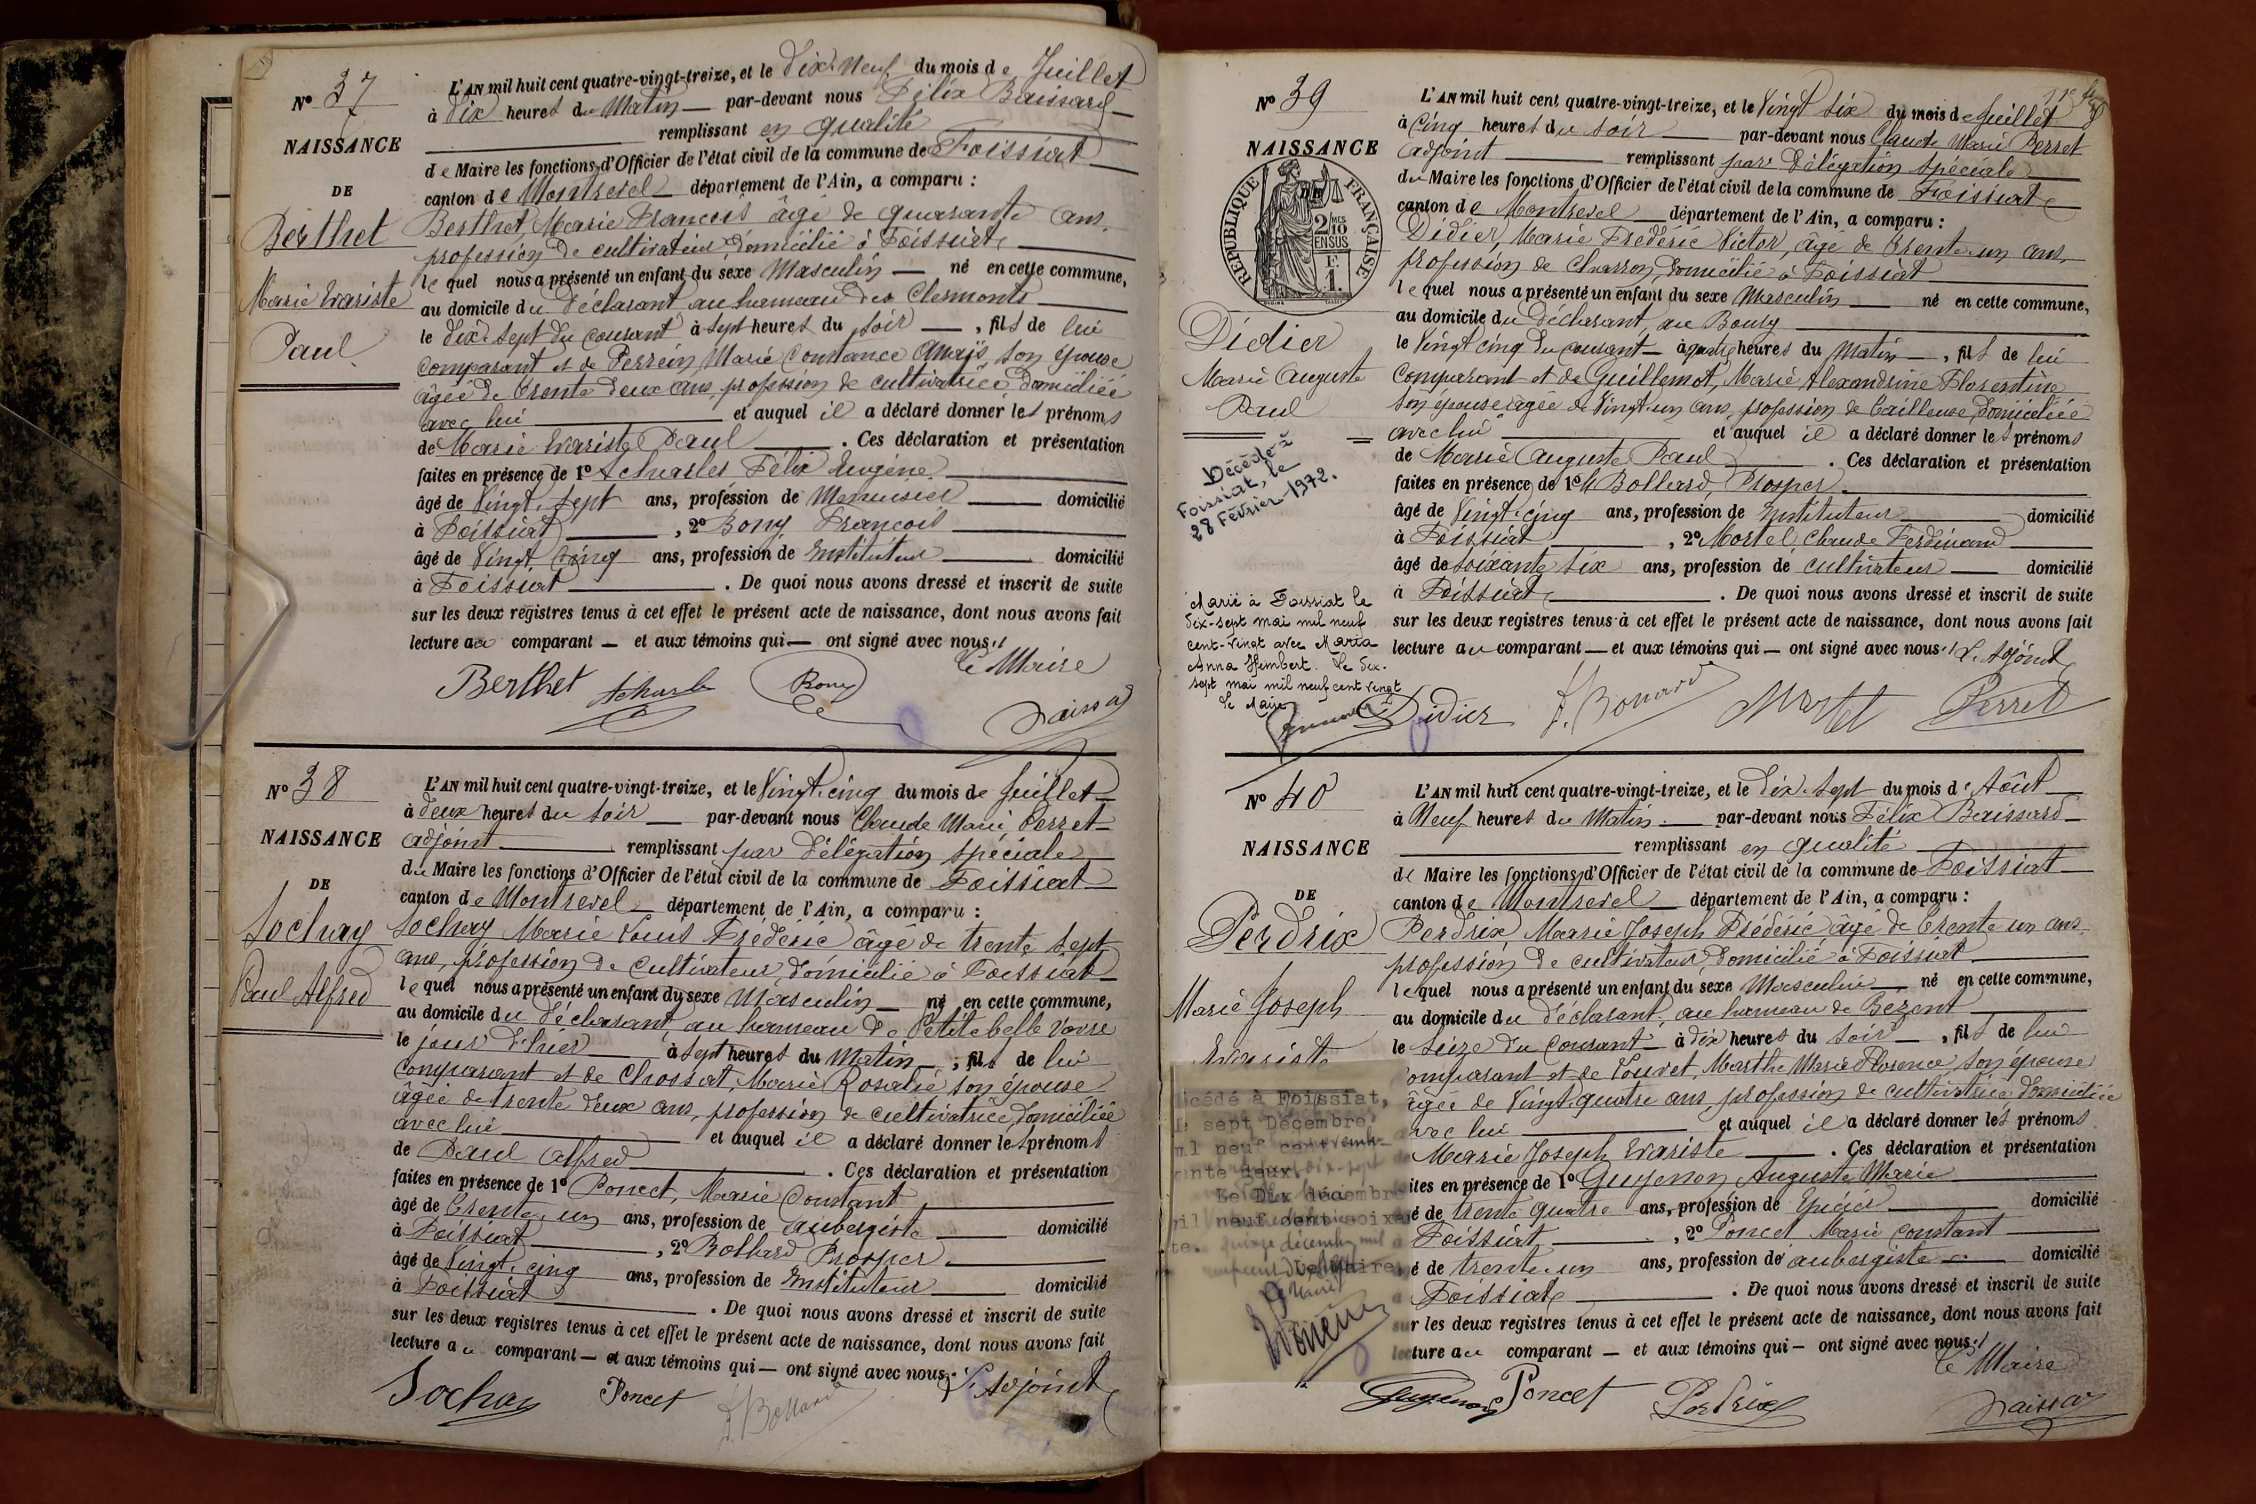 N° 37
NAISSANCE
DE
Berthet
Marie Evariste
Paul
L'AN mil huit cent quatre-vingt-treize, et le Dix-Neuf du mois de Juillet
à Dix heures du Matin par-devant nous Félix Baissard
remplissant en qualité
de Maire les fonctions d'Officier de l'état civil de la commune de Foissiat
canton de Montrevel département de l'Ain, a comparu :
Berthet, Marie François âgé de quarante ans,
profession de cultivateur, domicilié à Foissiat
lequel nous a présenté un enfant du sexe Masculin né en cette commune,
au domicile du déclarant au hameau des Clermonts
le dix-sept du courant à sept heures du soir, fils de lui
comparant et de Perrein, Marie Constance Anaïs, son épouse
âgée de trente deux ans, profession de cultivatrice domiciliée
avec lui et auquel il a déclaré donner les prénoms
de Marie Evariste Paul. Ces déclaration et présentation
faites en présence de 1° Acharles Félix Eugène
âgé de Vingt-sept ans, profession de Menuisier domicilié
à Foissiat, 2° Bony François
âgé de Vingt-Cinq ans, profession de Instituteur domicilié
à Foissiat. De quoi nous avons dressé et inscrit de suite
sur les deux registres tenus à cet effet le présent acte de naissance, dont nous avons fait
lecture au comparant et aux témoins qui ont signé avec nous.
Le Maire
Berthet Bony
N° 38
NAISSANCE
DE
Sochay
Paul Alfred
L'AN mil huit cent quatre-vingt-treize, et le Vingt-cinq du mois de Juillet
à deux heures du soir par-devant nous Claude Marie Perret
adjoint remplissant par délégation spéciale
du Maire les fonctions d'Officier de l'état civil de la commune de Foissiat
canton de Montrevel département de l'Ain, a comparu :
Sochay Marie Louis Frédéric âgé de trente sept
ans, profession de cultivateur, domicilié à Foissiat
lequel nous a présenté un enfant du sexe Masculin né en cette commune,
au domicile du déclarant, au hameau de Petite belle Voivre
le jour d'hier à sept heures du matin, fils de lui
comparant et de Chossat, Marie Rosalie son épouse
âgée de trente deux ans, profession de cultivatrice, domiciliée
avec lui et auquel il a déclaré donner les prénoms
de Paul Alfred. Ces déclaration et présentation
faites en présence de 1° Poncet, Marie Constant
âgé de trente-un ans, profession de aubergiste domicilié
à Foissiat, 2° Bollard Prosper
âgé de Vingt-cinq ans, profession de Instituteur domicilié
à Foissiat. De quoi nous avons dressé et inscrit de suite
sur les deux registres tenus à cet effet le présent acte de naissance, dont nous avons fait
lecture au comparant et aux témoins qui ont signé avec nous.
L'Adjoint
Sochay Poncet P. Bollard
N° 39
NAISSANCE
RÉPUBLIQUE FRANÇAISE
2/10 MES
EN SUS
1 F.
Didier
Marie Auguste
Paul
Décédé à
Foissiat, le
28 Février 1972.
Marié à Foissiat le
dix-sept mai mil neuf
cent-vingt avec Maria
Anna Humbert. Le dix-
sept mai mil neuf cent vingt
Le Maire
L'AN mil huit cent quatre-vingt-treize, et le Vingt six du mois de Juillet
à cinq heures du soir par-devant nous Claude Marie Perret
adjoint remplissant par délégation spéciale
du Maire les fonctions d'Officier de l'état civil de la commune de Foissiat
canton de Montrevel département de l'Ain, a comparu :
Didier, Marie Frédéric Victor, âgé de trente-un ans,
profession de charron, domicilié à Foissiat
lequel nous a présenté un enfant du sexe Masculin né en cette commune,
au domicile du déclarant, au Bourg
le Vingt cinq du courant à quatre heures du Matin, fils de lui
comparant et de Guillemot, Marie Alexandrine Florentine
son épouse âgée de Vingt-un ans, profession de tailleuse, domiciliée
avec lui et auquel il a déclaré donner les prénoms
de Marie Auguste Paul. Ces déclaration et présentation
faites en présence de 1° Bollard, Prosper
âgé de Vingt-cinq ans, profession de Instituteur domicilié
à Foissiat, 2° Mortel, Claude Ferdinand
âgé de soixante six ans, profession de cultivateur domicilié
à Foissiat. De quoi nous avons dressé et inscrit de suite
sur les deux registres tenus à cet effet le présent acte de naissance, dont nous avons fait
lecture au comparant et aux témoins qui ont signé avec nous. L'Adjoint
Didier P. Bollard Mortel Perret
N° 40
NAISSANCE
DE
Perdrix
Marie Joseph
Evariste
cédé à Foissiat,
sept Décembre
mil neuf cent
ante deux.
Le Dix décembre
mil neuf cent soixan
te.
Le Maire,
L'AN mil huit cent quatre-vingt-treize, et le Dix-Sept du mois d'Août
à Neuf heures du Matin par-devant nous Félix Baissard
remplissant en qualité
de Maire les fonctions d'Officier de l'état civil de la commune de Foissiat
canton de Montrevel département de l'Ain, a comparu :
Perdrix Marie Joseph Frédéric âgé de trente un ans,
profession de cultivateur, domicilié à Foissiat
lequel nous a présenté un enfant du sexe Masculin né en cette commune,
au domicile du déclarant, au hameau de Bezent
le seize du courant à dix heures du soir, fils de lui
comparant et de Louvet, Marthe Marie Florence, son épouse
âgée de Vingt-quatre ans, profession de cultivatrice domiciliée
avec lui et auquel il a déclaré donner les prénoms
Marie Joseph Evariste. Ces déclaration et présentation
ites en présence de 1° Guyenon Auguste Marie
é de trente quatre ans, profession de Epicier domicilié
Foissiat, 2° Poncet Marie Constant
é de trente-un ans, profession de aubergiste domicilié
Foissiat. De quoi nous avons dressé et inscrit de suite
sur les deux registres tenus à cet effet le présent acte de naissance, dont nous avons fait
lecture au comparant et aux témoins qui ont signé avec nous.
Le Maire
Guyenon Poncet Perdrix